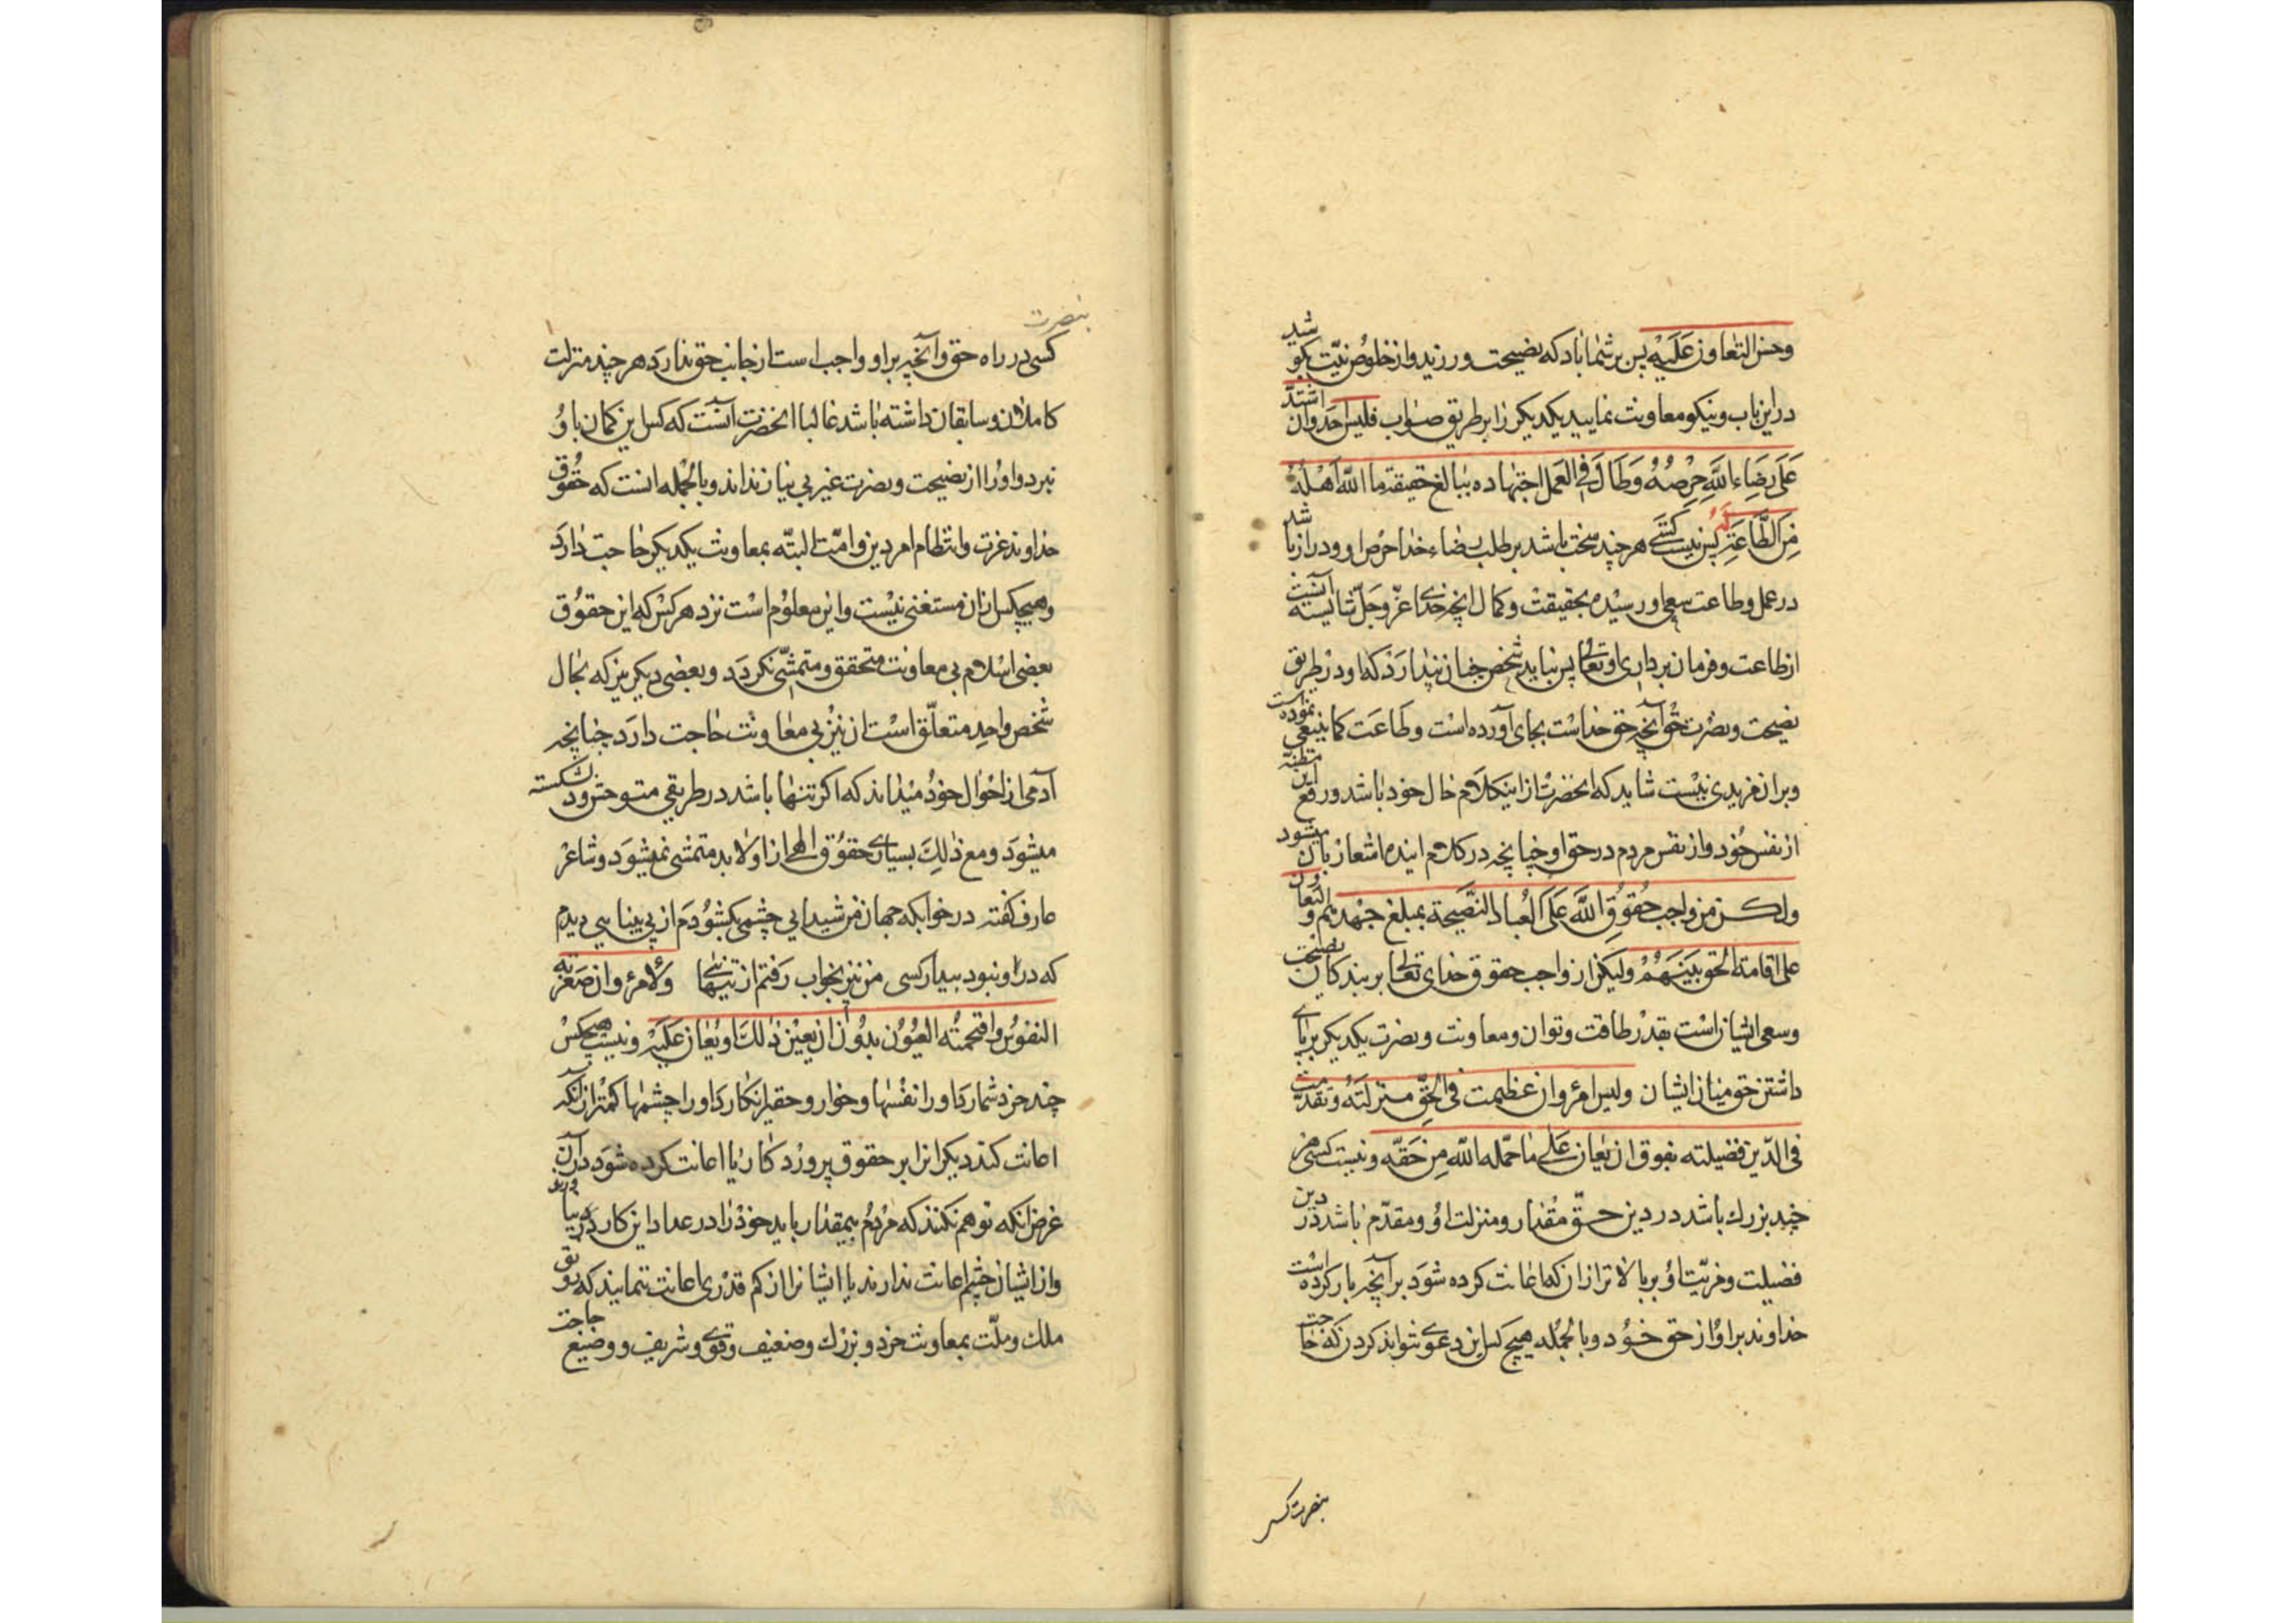 وحسن التعاون علیه پس بر شما باد که نصیحت ورزید و از خلوص نیّت بکو
شید
در این باب و نیکو معاونت نمایید یکدیکر را بر طریق صواب فلیس احد وان
اشتدّ
علی رضاء اللّه حرصه وطال فی العمل اجتهاده ببالغ حقیقة ما اللّه اهله
من الطّاعة له پس نیست کسی هر چند سخت باشد بر طلب رضاء خدا حرص او و دراز با
شد
در عمل وطاعت سعی او رسیده بحقیقت وکمال انچه خدای عزّ وجلّ شایسته
آنست
از طاعت و فرمان برداری او تعالی پس نباید شخص چنان پندارد که او در طریق
نصیحت ونصرت حق آنچه حق خداست بجای آورده است وطاعت کما ینبغی
نموده است
وبر ان مزیدی نیست شاید که انحضرت از این کلام حال خود باشد و رفع این
مظنّه
از نفس خود و از نفس مردم در حق او چنانچه در کلام اینده اشعار بان
میشود
ولکن من واجب حقوق اللّه علی العباد النّصیحة بمبلغ جهدهم و
التعاون
علی اقامة الحق بینهم ولیکن از واجب حقوق خدای تعالی بر بندکان
نصیحت
وسعی ایشان است بقدر طاقت وتوان ومعاونت ونصرت یکدیکر بر پای
داشتن حق میان ایشان ولیس امرؤ وان عظمت فی الحقّ منزلته وتقدّمت
فی الدّین فضیلته بفوق ان یعان علی ما حمّله اللّه من حقّه ونیست کسی هر
چند بزرك باشد در دین حقّ مقدار ومنزلت او ومقدّم باشد در
دین
فضیلت ومزیّت او بر بالاتر از ان که اعانت کرده شود بر آنچه بار کرده
است
خداوند بر او از حق خود وبالجمله هیچ کس این دعوی نتواند کردن که حا
جت
بنصرت کسی
بنصرت
کسی در راه حق و آنچه بر او واجب است از جانب حق ندارد هر چند منزلت
کاملان وسابقان داشته باشد غالبا انحضرت آنست که کس این کمان باو
نبرد و او را از نصیحت ونصرت غیر بی نیاز نداند وبالجمله انست که حقوق
خداوند عزت وانتظام امر دین وامّت البتّه بمعاونت یکدیکر حاجت دارد
وهیچکس از ان مستغنی نیست و این معلوم است نزد هر کس که این حقوق
بعضی اسلام بی معاونت متحقق ومتمشّی نکردد وبعضی دیکر نیز که بحال
شخص واحد متعلّق است ان نیز بی معاونت حاجت دارد چنانچه
آدمی از احوال خود میداند که اکر تنها باشد در طریقی متوحش ودل
شکسته
میشود ومع ذلك بسیاری حقوق الهی از او لا بد متمشی نمیشود وشاعر
عارف کفته در خوابکه جهان من شیدایی چشمی بکشودم از پی بینایی دیدم
که در او نبود بیدار کسی من نیز بخواب رفتم از تنهایی ولا امرؤ وان صغّرته
النفوس واقتحمته العیون بدون ان یعین ذلك او یعان علیه ونیست هیچکس
چند خرد شمارد او را نفسها وخوار وحقیر انکارد او را چشمها کمتر از انکه
اعانت کند دیکرانرا بر حقوق پروردکار یا اعانت کرده شود در آن
غرض انکه توهم نکنند که مردم بیمقدار باید خود را در عداد این کار در
نیا ورند
و از ایشان چشم اعانت ندارند یا ایشانرا از کم قدری اعانت ننمایند که رو
نق
ملك وملّت بمعاونت خرد وبزرك وضعیف وقوی وشریف و وضیع
حاجت